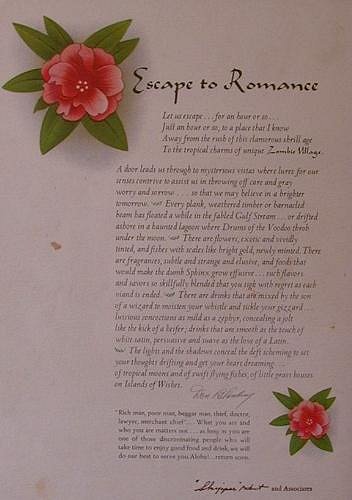 Escape to Romance
Let us escape . . . for an hour or so . . .
Just an hour or so, to a place that I know
Away from the rush of this clamorous shrill age
To the tropical charms of unique Zombie Village.
A door leads us through to mysterious vistas where lures for our
senses contrive to assist us in throwing off care and gray
worry and sorrow . . . so that we may believe in a brighter
tomorrow. Every plank, weathered timber or barnacled
beam has floated a while in the fabled Gulf Stream . . . or drifted
ashore in a haunted lagoon where Drums of the Voodoo throb
under the moon. There are flowers, exotic and vividly
tinted, and fishes with scales like bright gold, newly minted. There
are fragrances, subtle and strange and elusive, and foods that
would make the dumb Sphinx grow effusive . . . such flavors
and savors so skillfully blended that you sigh with regret as each
viand is ended. There are drinks that are mixed by the son
of a wizard to moisten your whistle and tickle your gizzard . . .
luscious concoctions as mild as a zephyr, concealing a jolt
like the kick of a heifer; drinks that are smooth as the touch of
white satin, persuasive and suave as the love of a Latin.
The lights and the shadows conceal the deft scheming to set
your thoughts drifting and get your hearts dreaming . . .
of tropical moons and of swift flying fishes, of little grass houses
on Islands of Wishes.
"Rich man, poor man, beggar man, thief, doctor,
lawyer, merchant chief" . . . What you are and
who you are matters not . . . as long as you are
one of those discriminating people who will
take time to enjoy good food and drink, we will
do our best to serve you. Aloha! . . . return soon.
and Associates